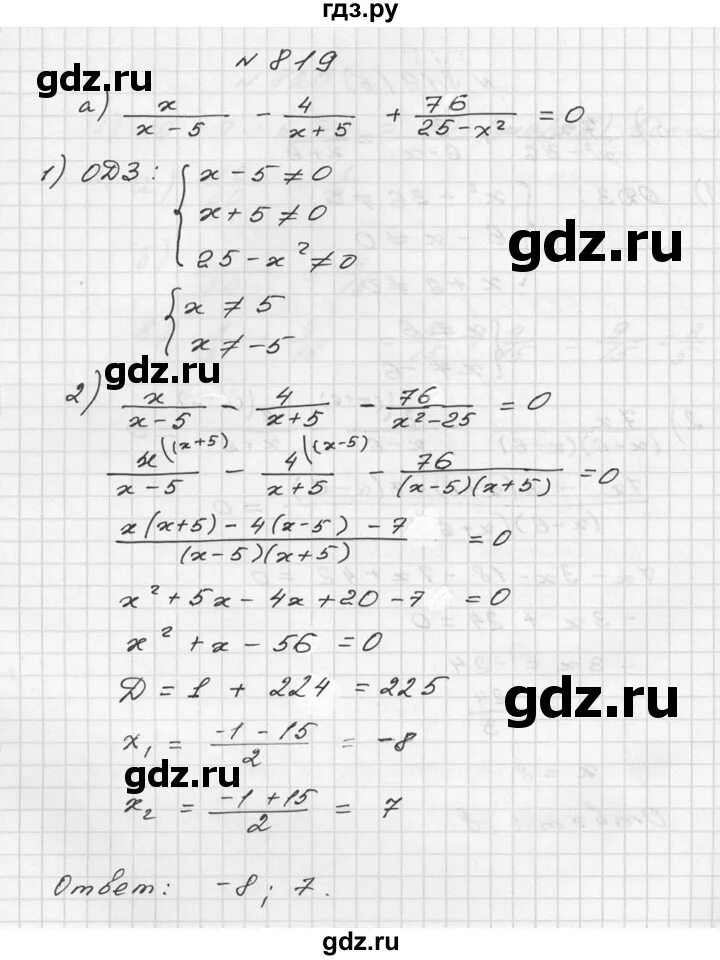 гдз.ру
№ 819
gdz.ru
а) x/(x-5) - 4/(x+5) + 76/(25-x²) = 0
1) ОДЗ: { x-5≠0
x+5≠0
gdz.ru
25-x²≠0
{ x ≠ 5
x ≠ -5
gdz.ru
2) x/(x-5) - 4/(x+5) - 76/(x²-25) = 0
x\(x+5)/(x-5) - 4\(x-5)/(x+5) - 76/((x-5)(x+5)) = 0
(x(x+5) - 4(x-5) - 7)/((x-5)(x+5)) = 0
gdz.ru
x² + 5x - 4x + 20 - 7 = 0
x² + x - 56 = 0
Д = 1 + 224 = 225
gdz.ru
x₁ = (-1-15)/2 = -8
gdz.ru
x₂ = (-1+15)/2 = 7
Ответ: -8; 7.
gdz.ru